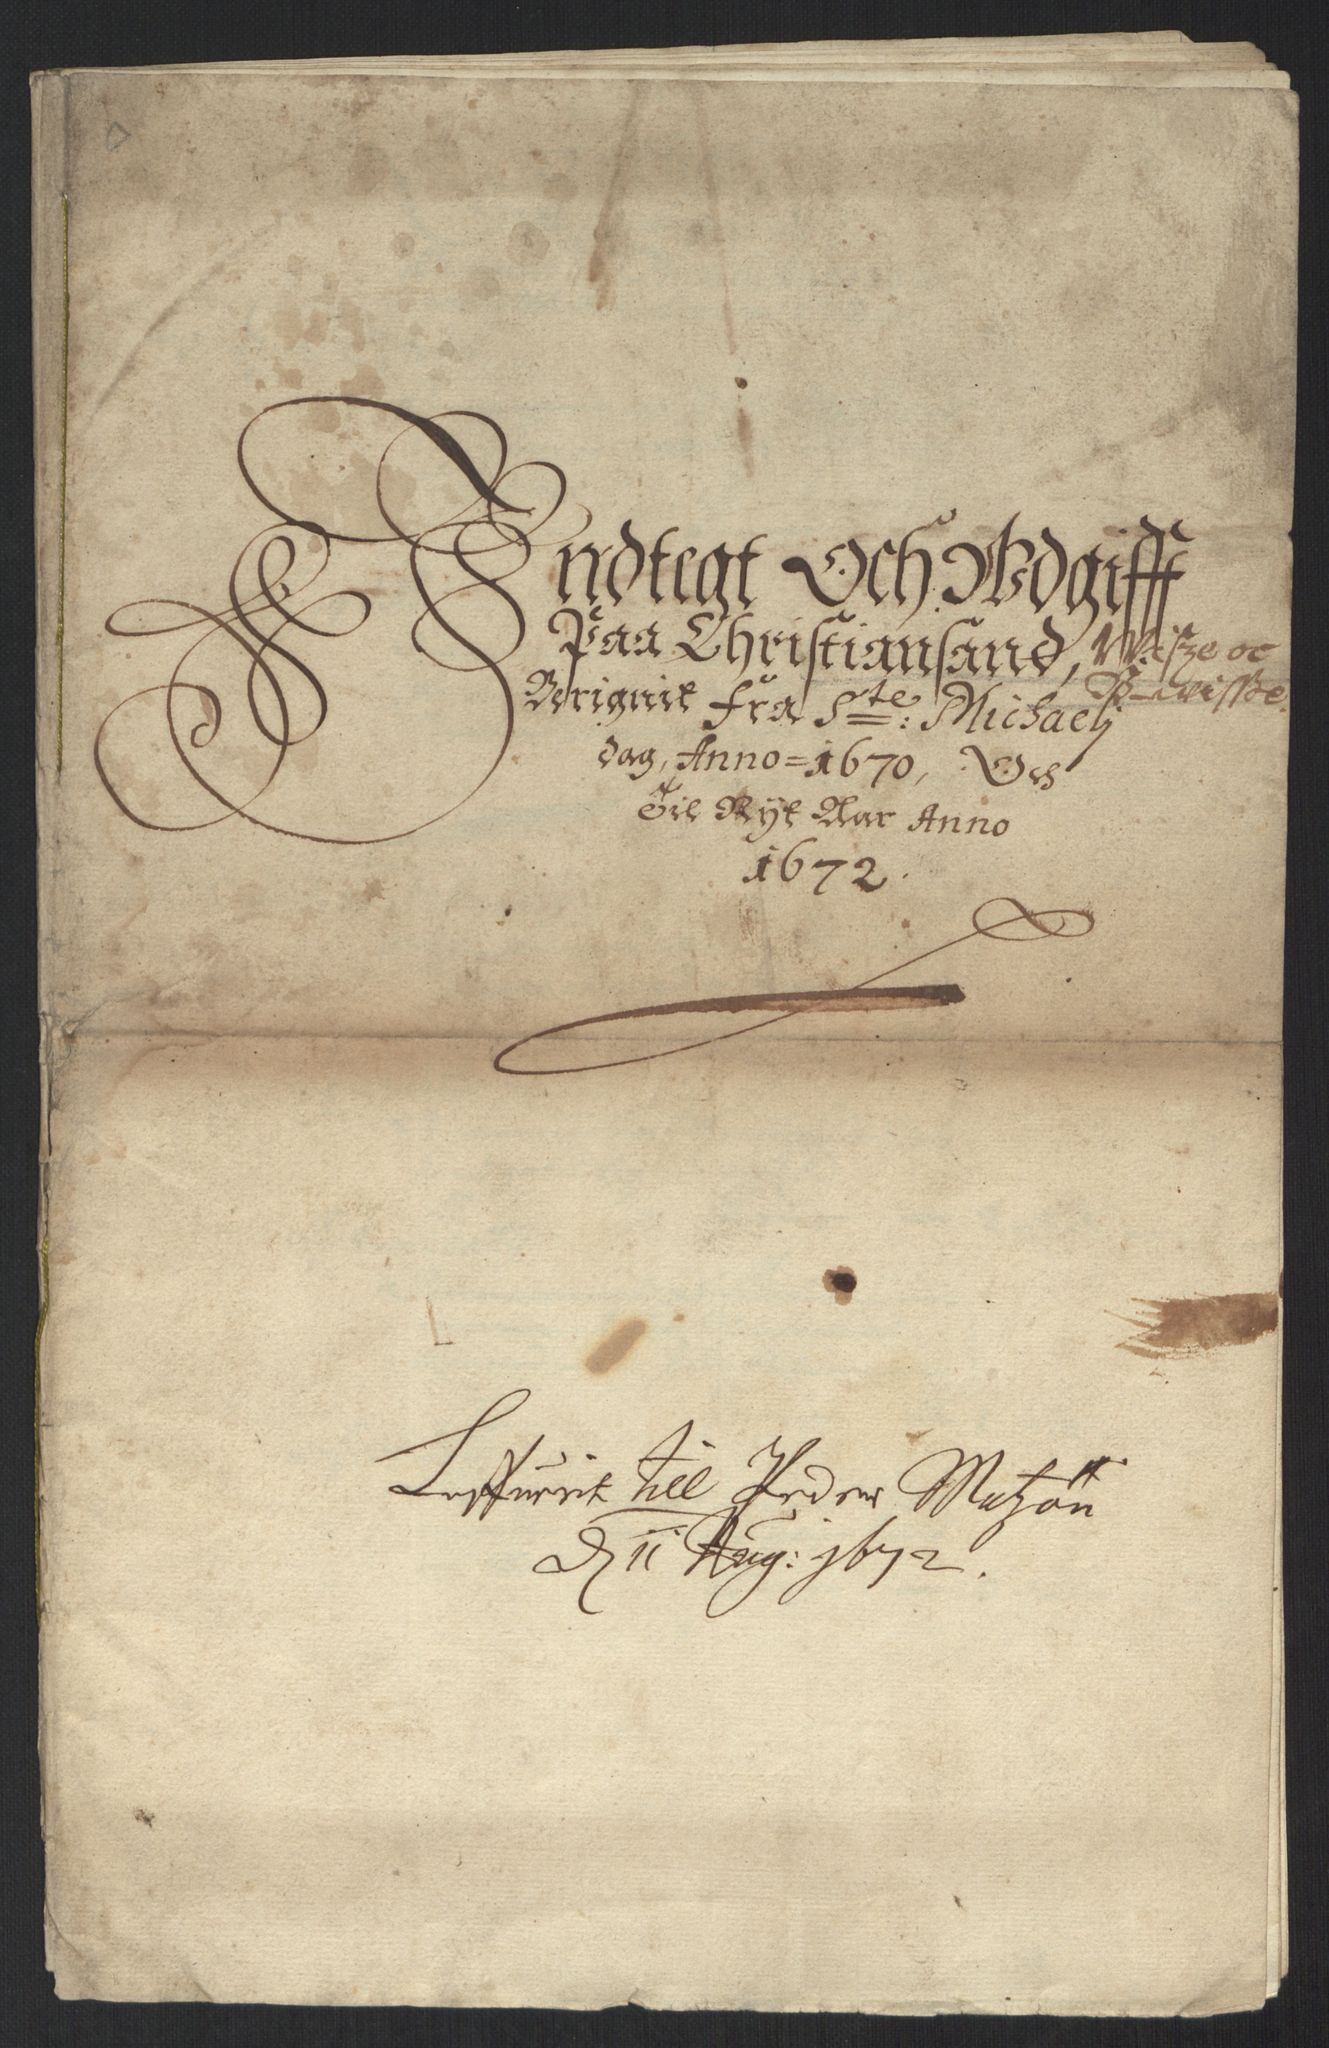 Indtegt Och Wdgifft
Paa Christiansand, Wisze oc
Berignit fra Ste: Michaeli Uwisse.
dag, Anno = 1670, Och
Til Nyt Aar Anno
1672.
Leffuerit till Peder Matzøn
d 11 Aug: 1672.